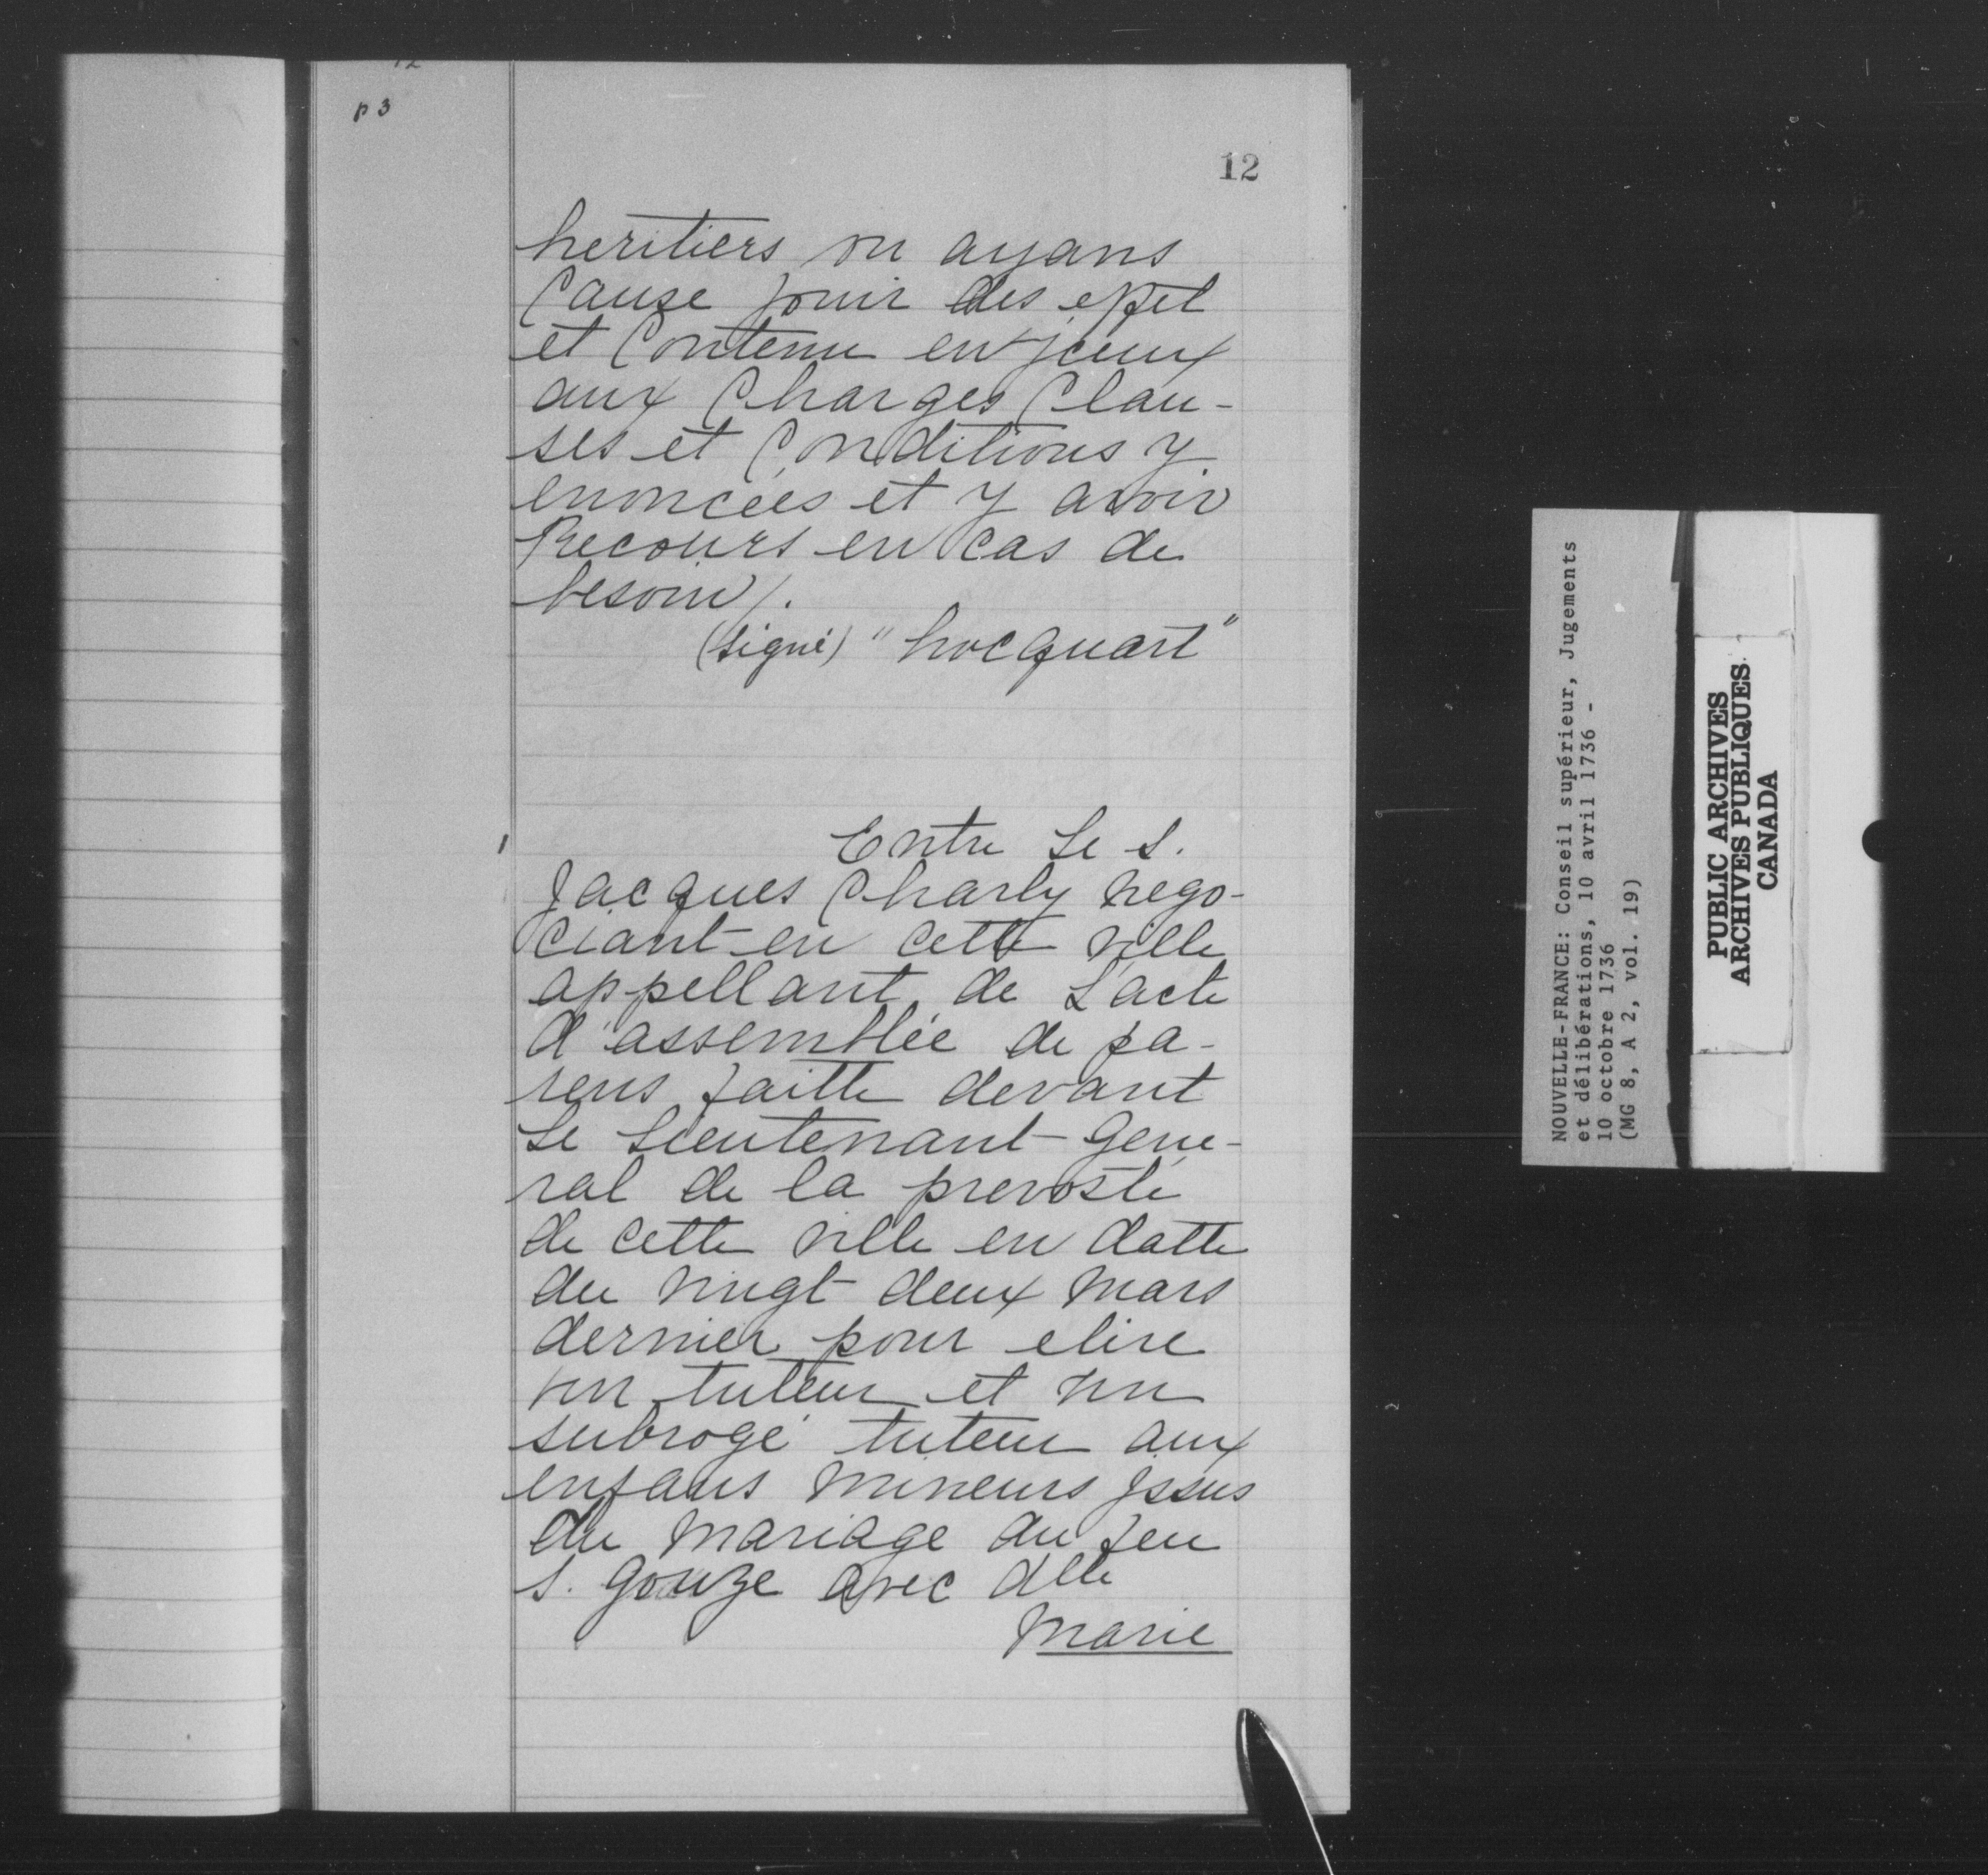 12
p 3
12
heritiers ou ayans
Cause jouir des effet
et Contenu en jceux
aux Charges Clau-
ses et Conditions y
enoncées et y avoir
Recours en cas de
besoin /.
(signé) "hocquart"
Entre Le s.
Jacques Charly nego-
ciant en cette ville
appellant de L'acte
d'assemblée de pa-
rens faitte devant
Le Lieutenant gene-
ral de la prevosté
de cette ville en datte
du vingt deux mars
dernier pour elire
un tuteur et un
subrogé tuteur aux
enfans mineurs jssus
du mariage du feu
s. gouze avec dlle
Marie
NOUVELLE-FRANCE: Conseil supérieur, Jugements
et délibérations, 10 avril 1736 -
10 octobre 1736
(MG 8, A 2, vol. 19)
PUBLIC ARCHIVES
ARCHIVES PUBLIQUES
CANADA